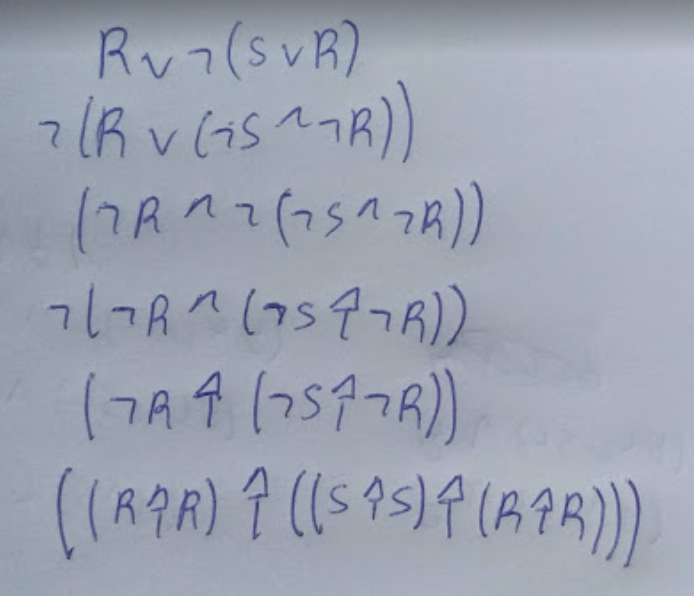 R∨¬(S∨R)
¬(R∨(¬S∧¬R))
(¬R∧¬(¬S∧¬R))
¬(¬R∧(¬S↑¬R))
(¬R↑(¬S↑¬R))
((R↑R)↑((S↑S)↑(R↑R)))